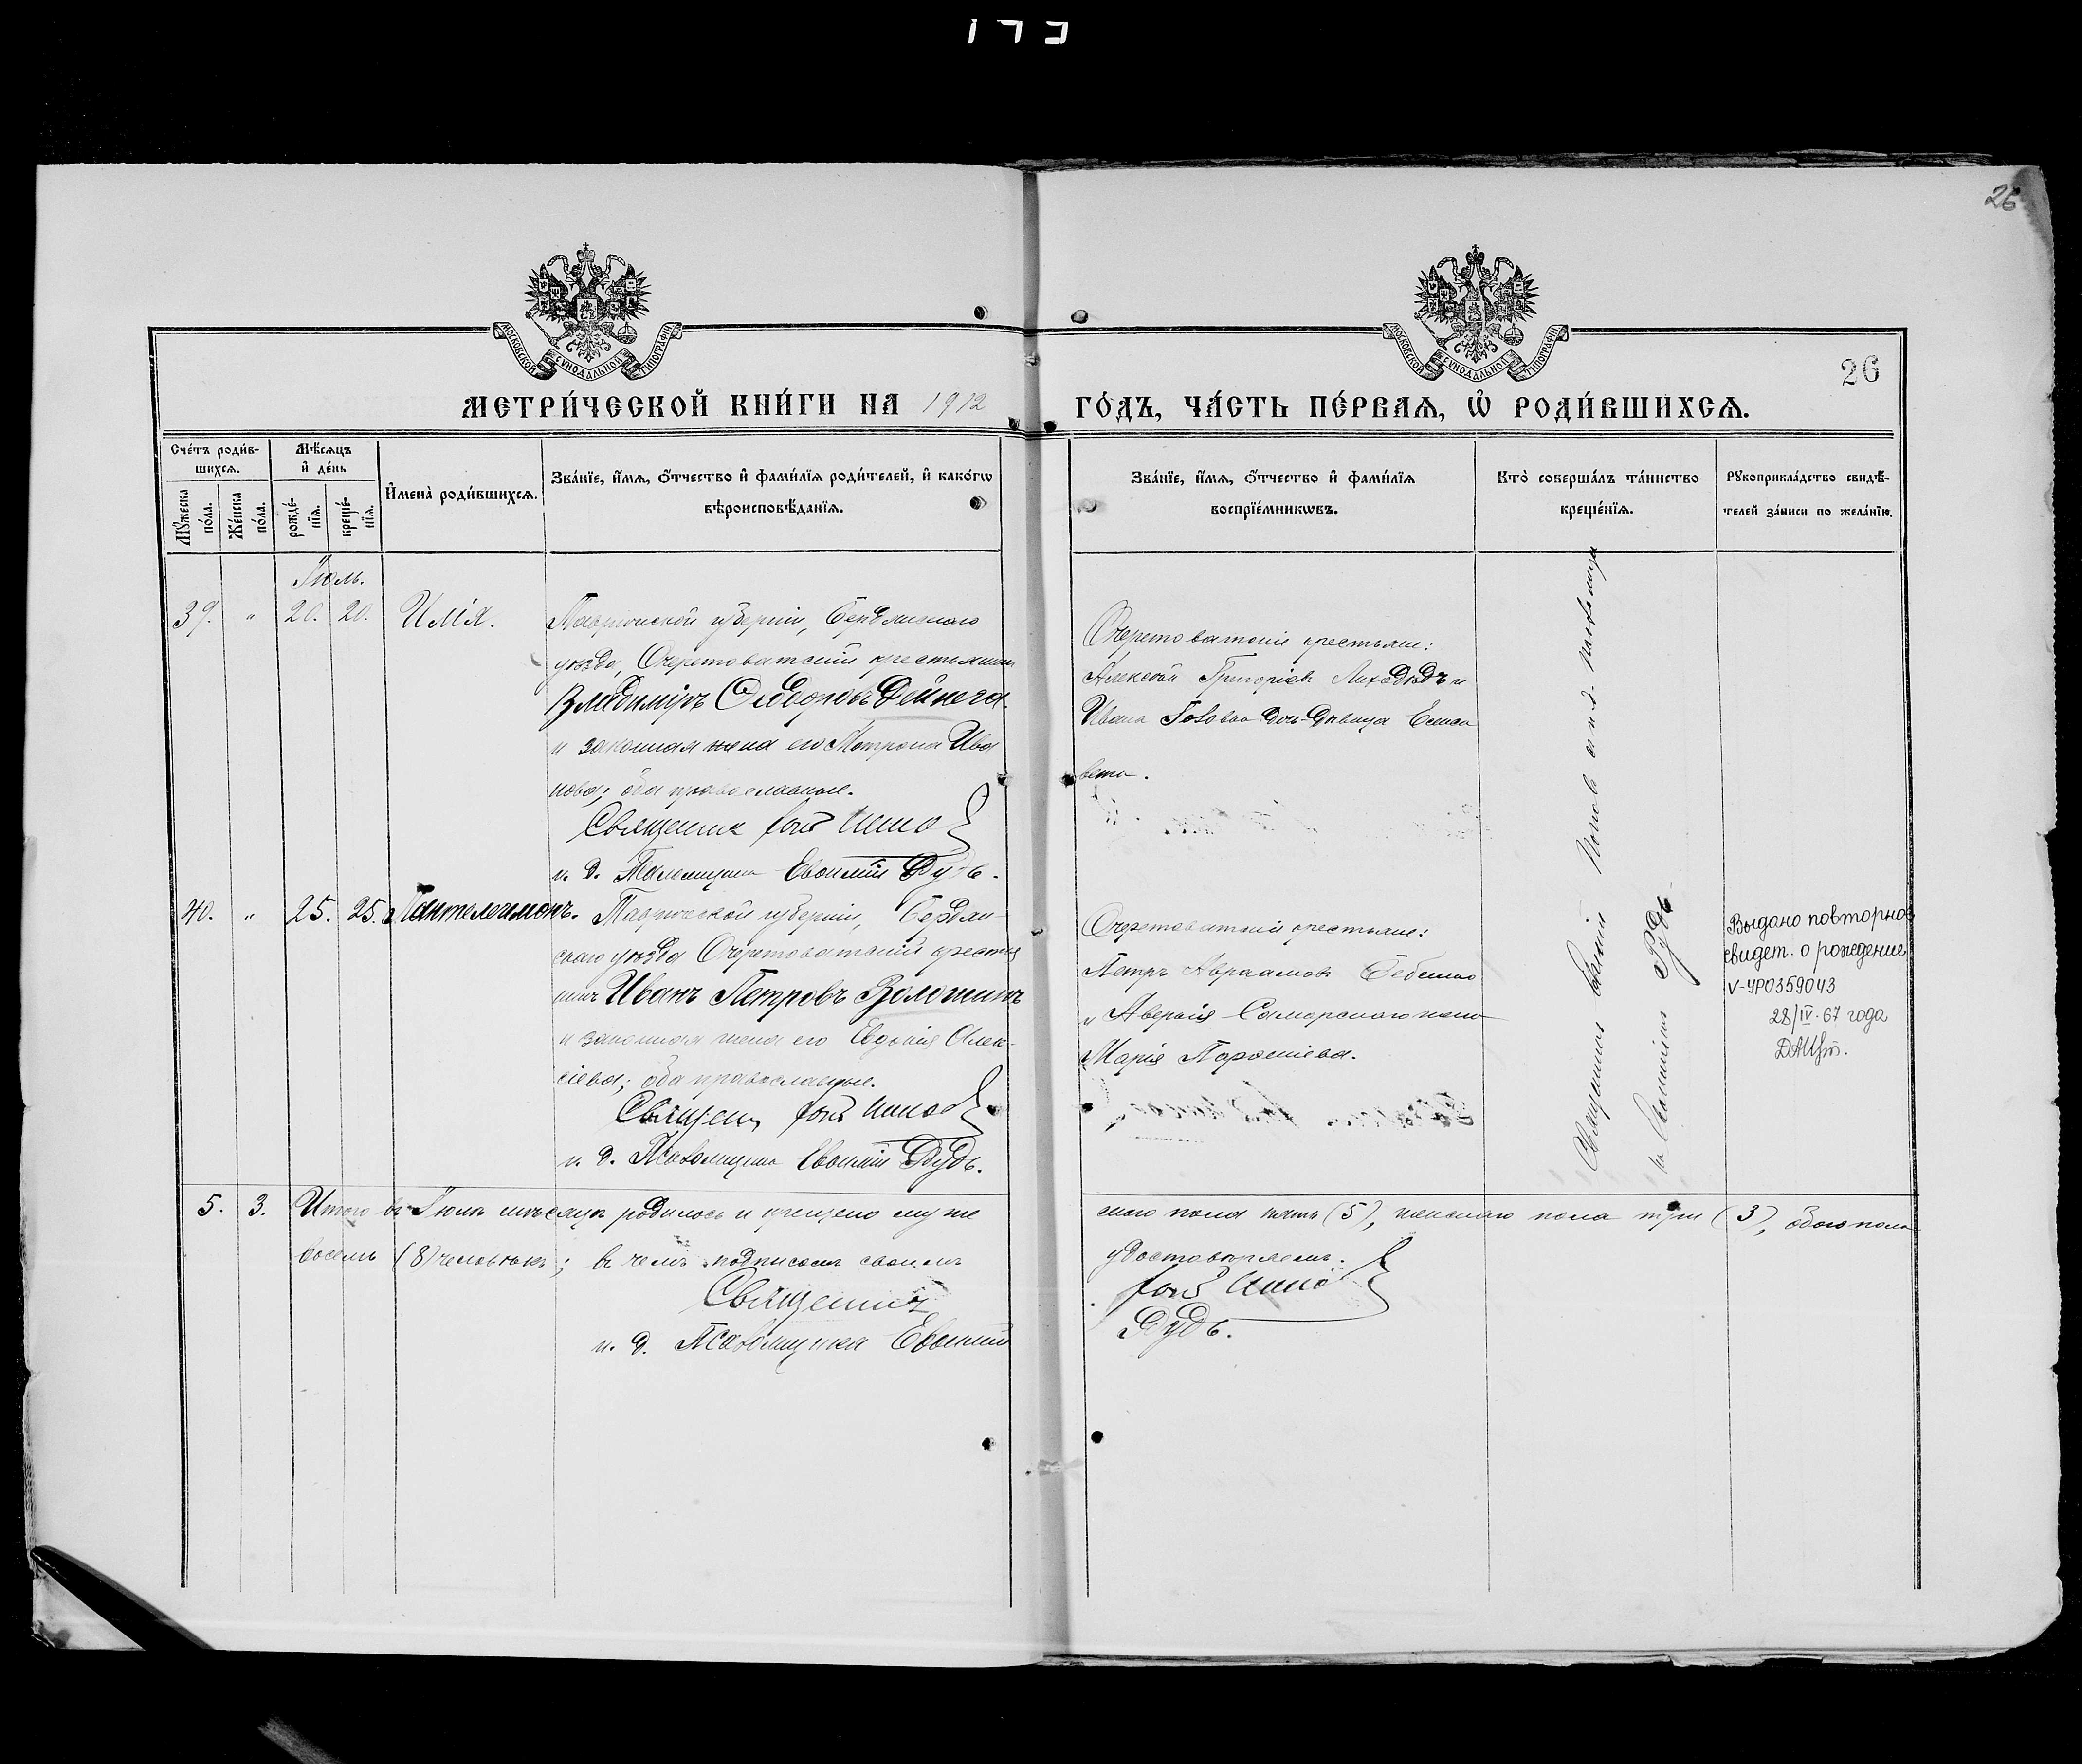 173
26
26
МОСКОВСКОЙ СѴНОДАЛЬНОЙ ТИПОГРАФІИ
МОСКОВСКОЙ СѴНОДАЛЬНОЙ ТИПОГРАФІИ
МЕТРИ́ЧЕСКОЙ КНИ́ГИ НА 1912
ГО́ДЪ, ЧА́СТЬ ПЕ́РВАѦ, Ѽ РОДИ́ВШИХСѦ.
Сче́тъ роди́в-
шихсѧ.
Мѣ́сѧцъ
и҆ де́нь
Мꙋ́жеска
по́ла.
Же́нска
по́ла.
рожде́-
нїѧ.
креще́-
нїѧ.
И҆мена̀ роди́вшихсѧ.
Зва́нїе, и҆́мѧ, ѻ҆́тчество и҆ фами́лїѧ роди́телей, и҆ како́гѡ
вѣроисповѣ́данїѧ.
Зва́нїе, и҆́мѧ, ѻ҆́тчество и҆ фами́лїѧ
воспрїе́мникѡвъ.
Кто̀ соверша́лъ та́инство
креще́нїѧ.
Рꙋкоприкла́дство свидѣ́-
телей за́писи по жела́нїю.
Іюль.
39. " 20. 20. Илія.
Таврической губерніи, Бердянскаго
уѣзда, Очеретоватскій крестьянинъ
Владиміръ Ѳеодоровъ Дейнега
и законная жена его Матрона Ива
нова; оба православные.
Священник
и. д. Псаломщика Евѳимій Дудь.
Очеретоватскіе крестьяне:
Алексѣй Григоріевъ Лиходѣдъ и
Ивана дочь-дѣвица Елиса
вета.
40. " 25. 25. Пантелеимонъ.
Таврической губерніи, Бердян-
скаго уѣзда Очеретоватскій крестья
нинъ Иванъ Петровъ Волошинъ
и законная жена его Евдокія Алек-
сіева; оба православные.
Священ
и. д. Псаломщика Евѳимій Дудь.
Очеретоватскіе крестьяне:
Петръ Авраамовъ
и Аверкія Самарскаго жена
Марія
Священник и и. д. Псаломщика
Дудь
Выдано повторное
свидет. о рождение
V-УР0359043
28/IV-67 года
5. 3. Итого въ Іюлѣ мѣсяцѣ родилось и крещено муже
скаго пола пять (5), женскаго пола три (3), обоего пола
восемь (8) человѣкъ; въ чемъ подписомъ своимъ
удостовѣряемъ.
Священникъ
и. д. Псаломщика Евѳимій
Дудь.